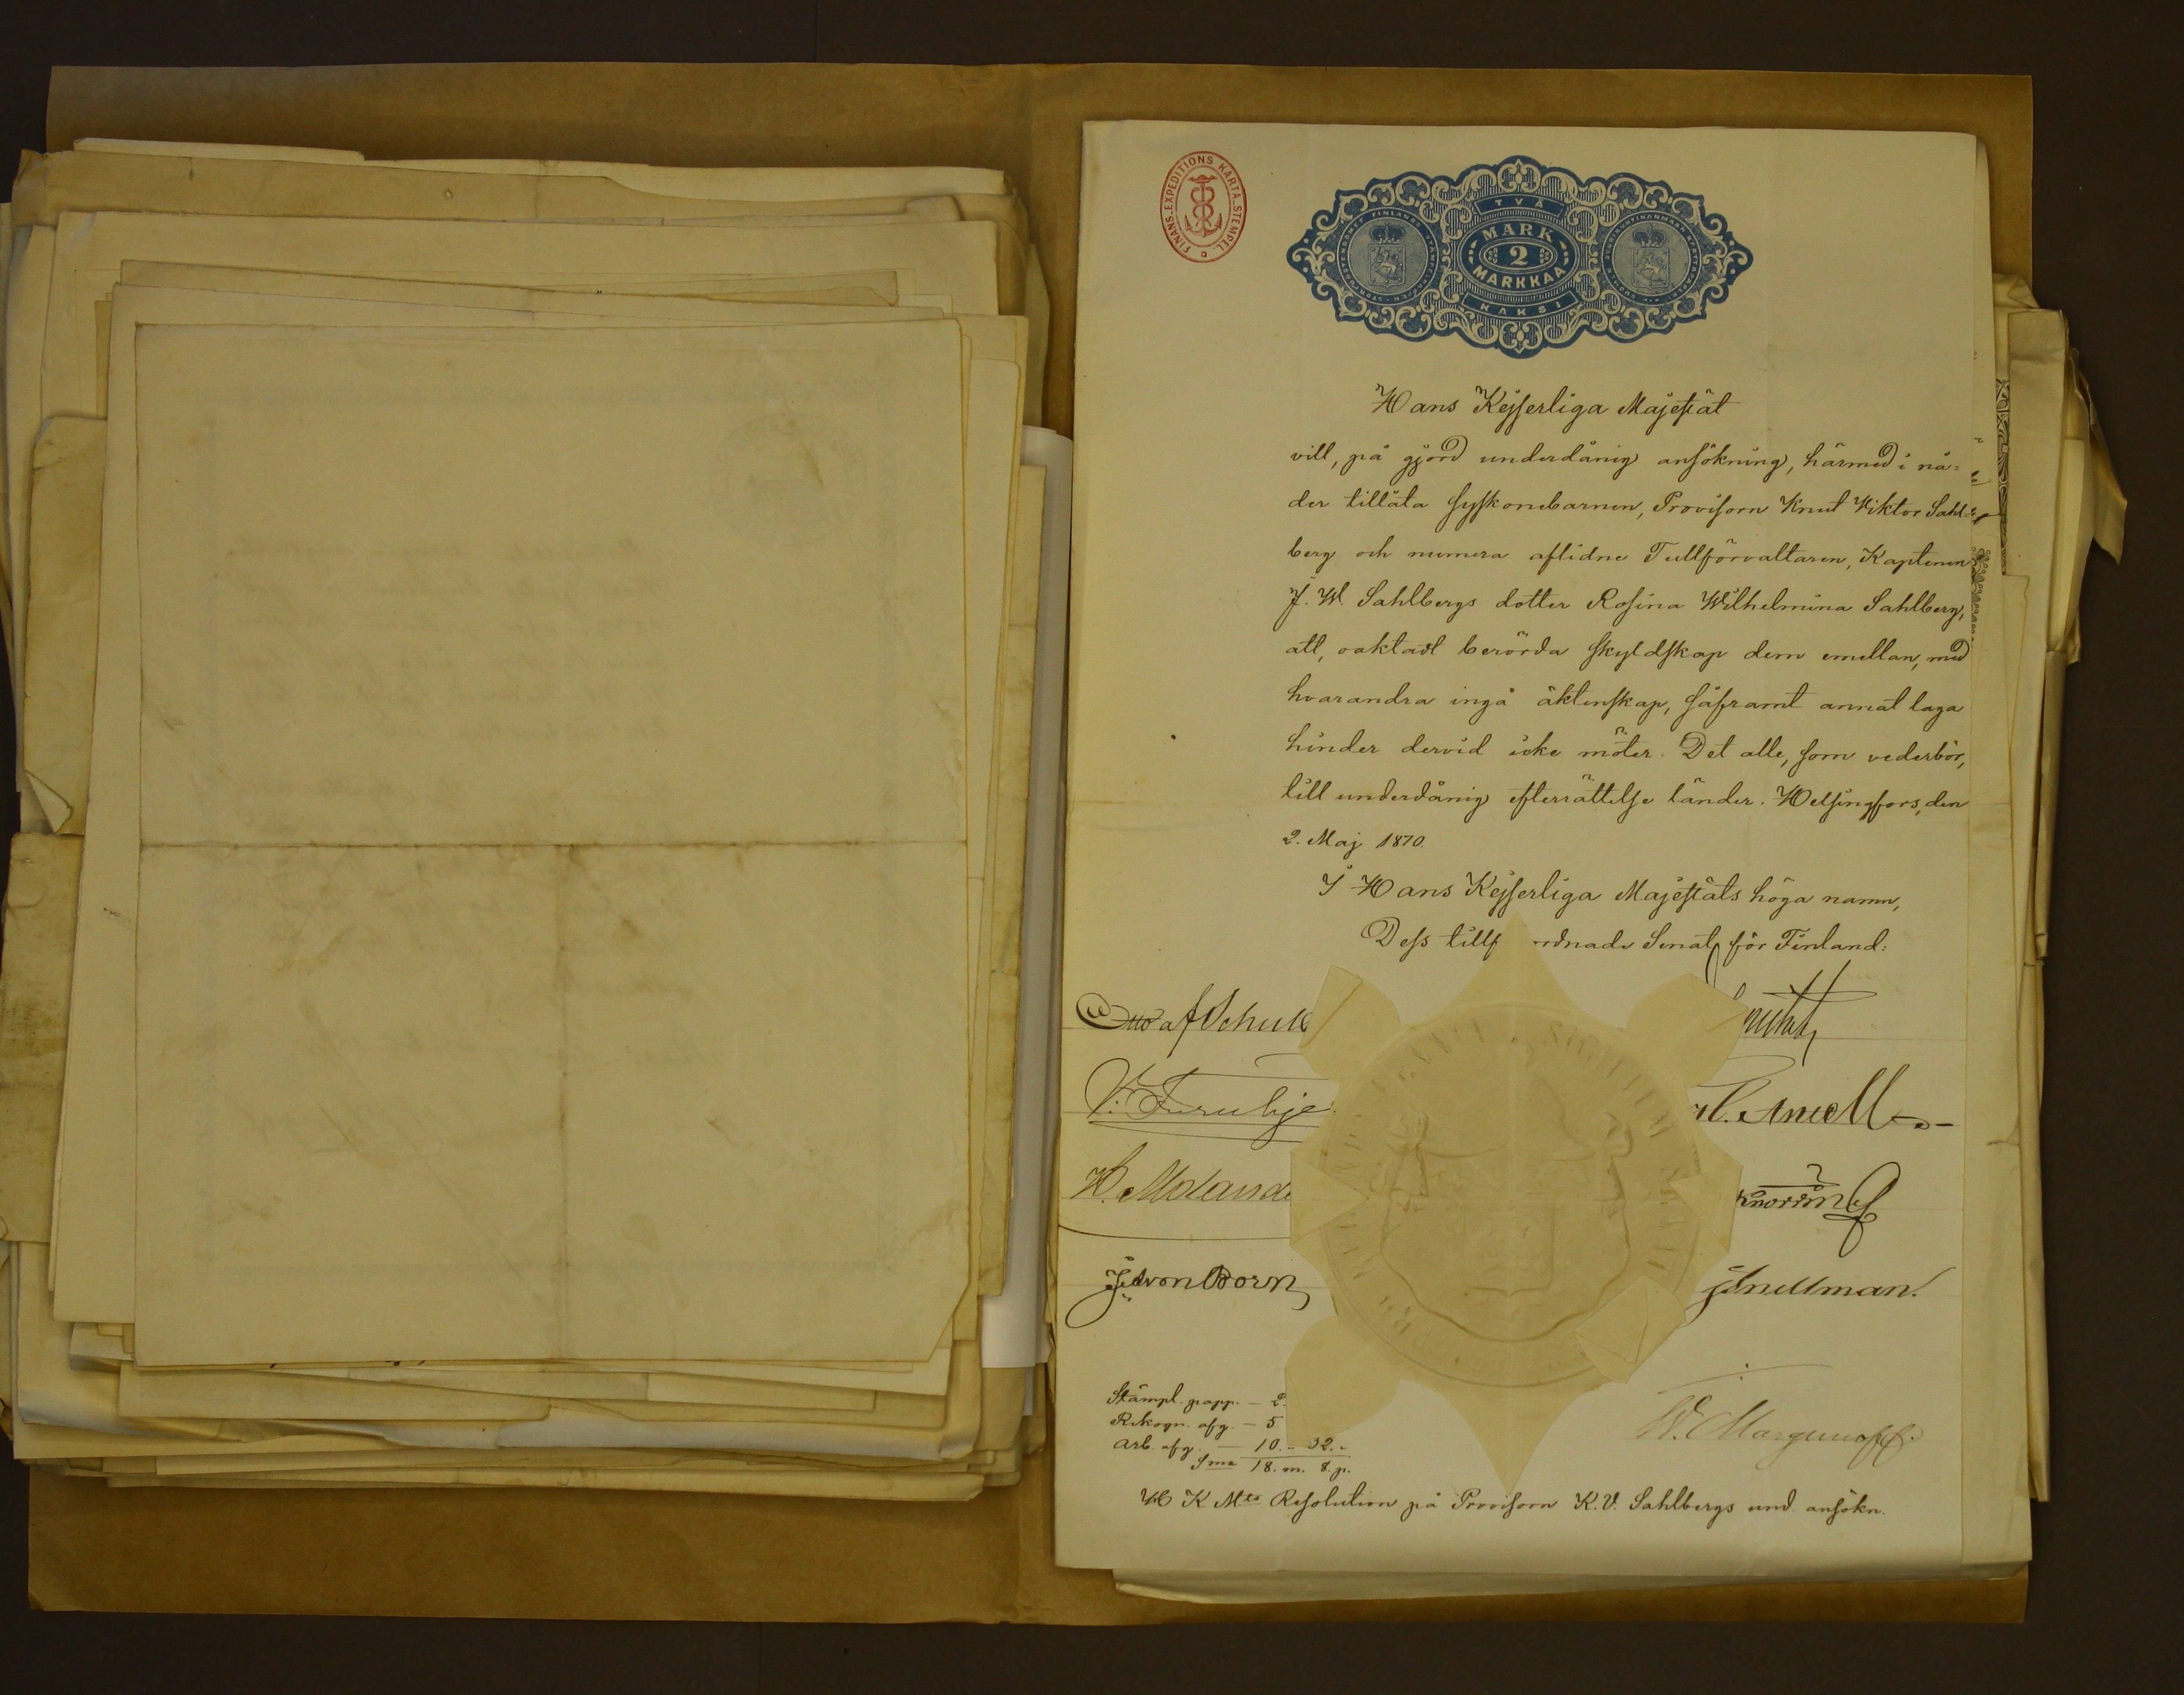 FINANS-EXPEDITIONS KARTA-STEMPEL
TVÅ
MARK
2
MARKKAA
KAKSI
Hans Kejserliga Majestät
vill, på gjord underdånig ansökning, härmed i nå-
der tillåta syskonebarnen, Provisorn Knut Viktor Sahl-
berg och numera aflidne Tullförvaltaren, Kaptenen
J. W. Sahlbergs dotter Rosina Wilhelmina Sahlberg,
att, oaktadt berörda skyldskap dem emellan, med
hvarandra ingå äktenskap, såframt annat laga
hinder dervid icke möter. Det alle, som vederbör,
till underdånig efterrättelse länder. Helsingfors, den
2. Maj 1870.
I Hans Kejserliga Majestäts höga namn,
Dess tillf ordnade Senat för Finland:
Otto af Schult
V. Furuhje
H. Molande
Knorring
von Born
Snellman.
Stämpl. papp. — 2.
Rekogn. afg. — 5
Arb. afg. — 10. - 32. -
Sma 18. m. 8. p.
H K Mts Resolution på Provisorn K. V. Sahlbergs und. ansökn.